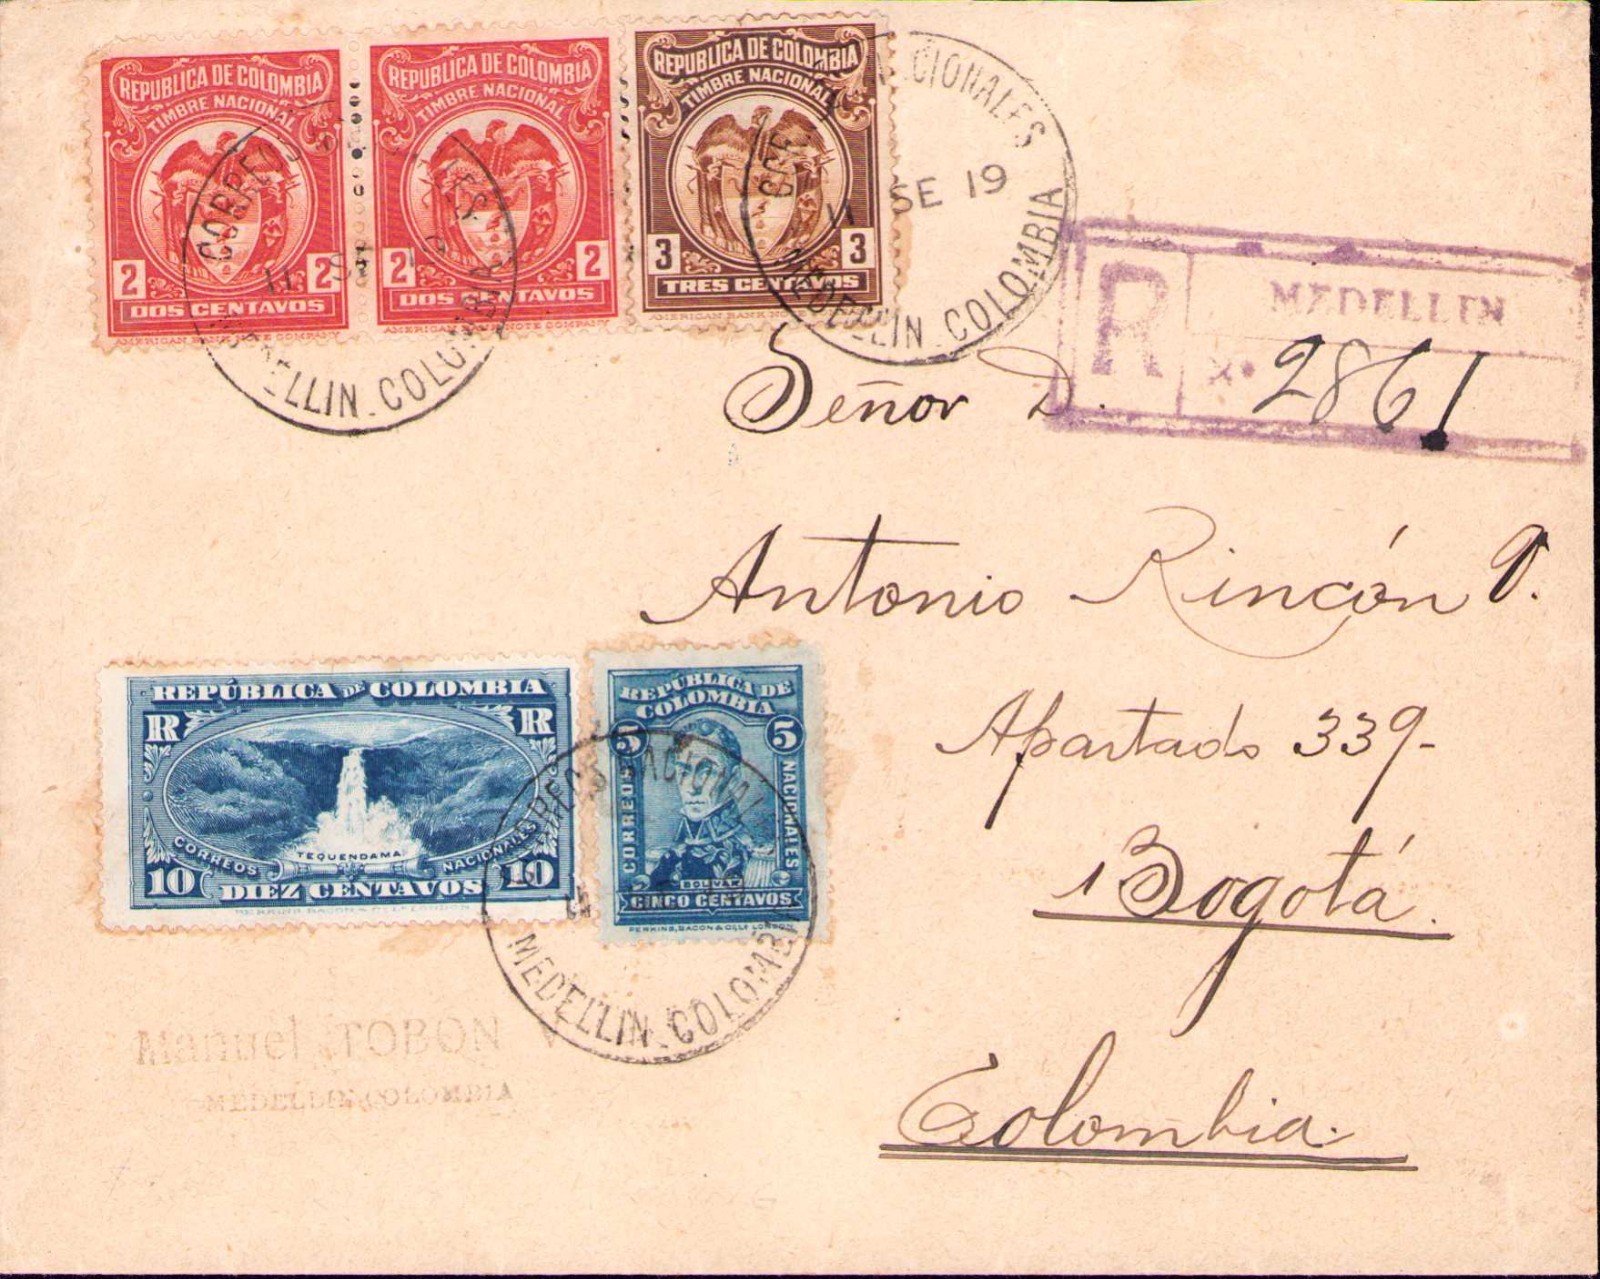 REPUBLICA DE COLOMBIA
TIMBRE NACIONAL
2 2
DOS CENTAVOS
AMERICAN BANK NOTE COMPANY
REPUBLICA DE COLOMBIA
TIMBRE NACIONAL
2 2
DOS CENTAVOS
AMERICAN BANK NOTE COMPANY
REPUBLICA DE COLOMBIA
TIMBRE NACIONAL
3 3
TRES CENTAVOS
AMERICAN BANK NOTE
CORREOS
11 SE 19
MEDELLIN_COLOMBIA
NACIONALES
11 SE 19
MEDELLIN_COLOMBIA
R
MEDELLIN
2861
Señor D.
Antonio Rincón
Apartado 339-
Bogotá.
Colombia.
REPÚBLICA DE COLOMBIA
R R
CORREOS TEQUENDAMA NACIONALES
10 10
DIEZ CENTAVOS
REPÚBLICA DE
COLOMBIA
5 5
CORREOS NACIONALES
BOLIVAR
CINCO CENTAVOS
PERKINS, BACON & Co LD LONDON
CORREOS NACIONALES
MEDELLIN_COLOMBIA
Manuel TOBON V
MEDELLIN, COLOMBIA